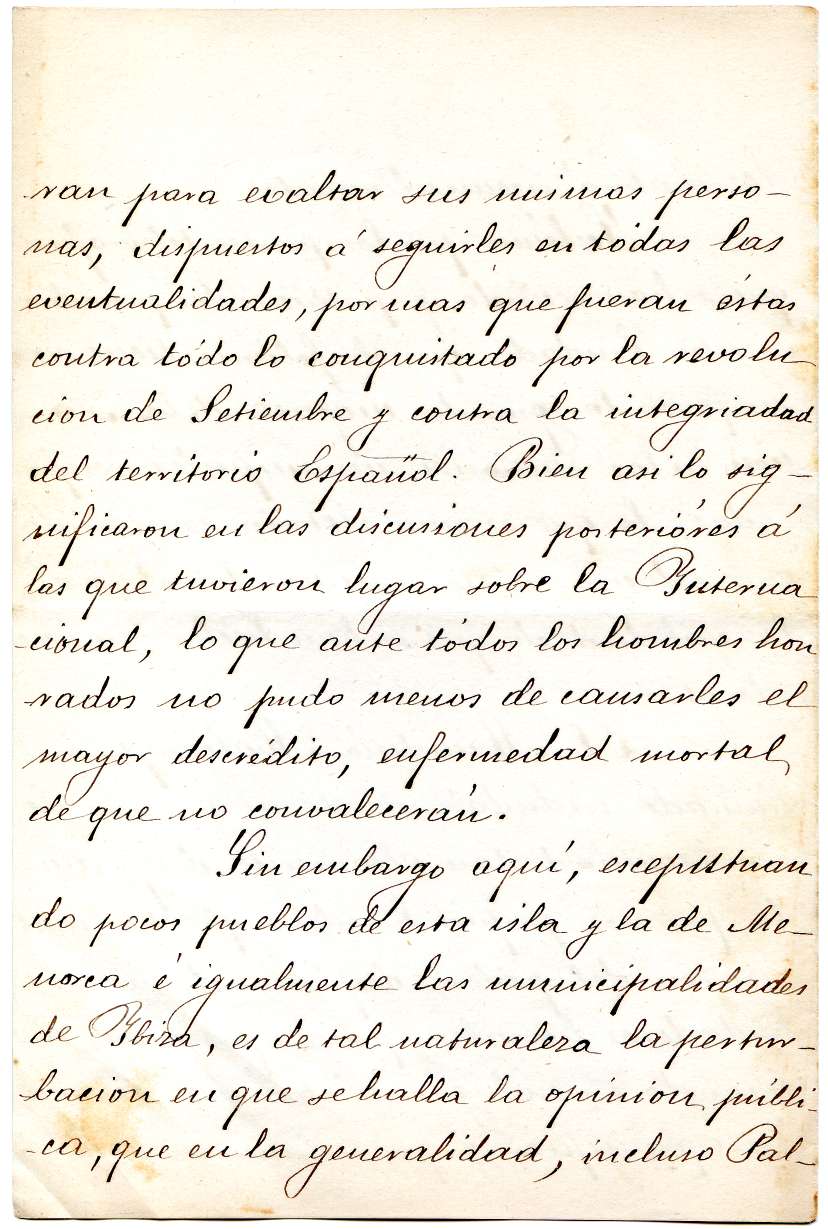 ran para exaltar sus mimas perso-
nas, dispuestos á seguirles en tódas las
eventualidades, por mas que fueran éstas
contra tódo lo conquistado por la revolu
cion de Setiembre y contra la integriadad
del territorio Español. Bien asi lo sig-
nificaron en las discusiones posterióres á
las que tuvieron lugar sobre la Interna
-cional, lo que ante tódos los hombres hon
rados no pudo menos de causarles el
mayor descrédito, enfermedad mortal
de que no convalecerán.
Sin embargo aquí, esceptuan
do pocos pueblos de esta isla y la de Me-
norca é igualmente las municipalidades
de Ybiza, es de tal naturaleza la pertur-
bacion en que se halla la opinion públi-
-ca, que en la generalidad, incluso Pal-